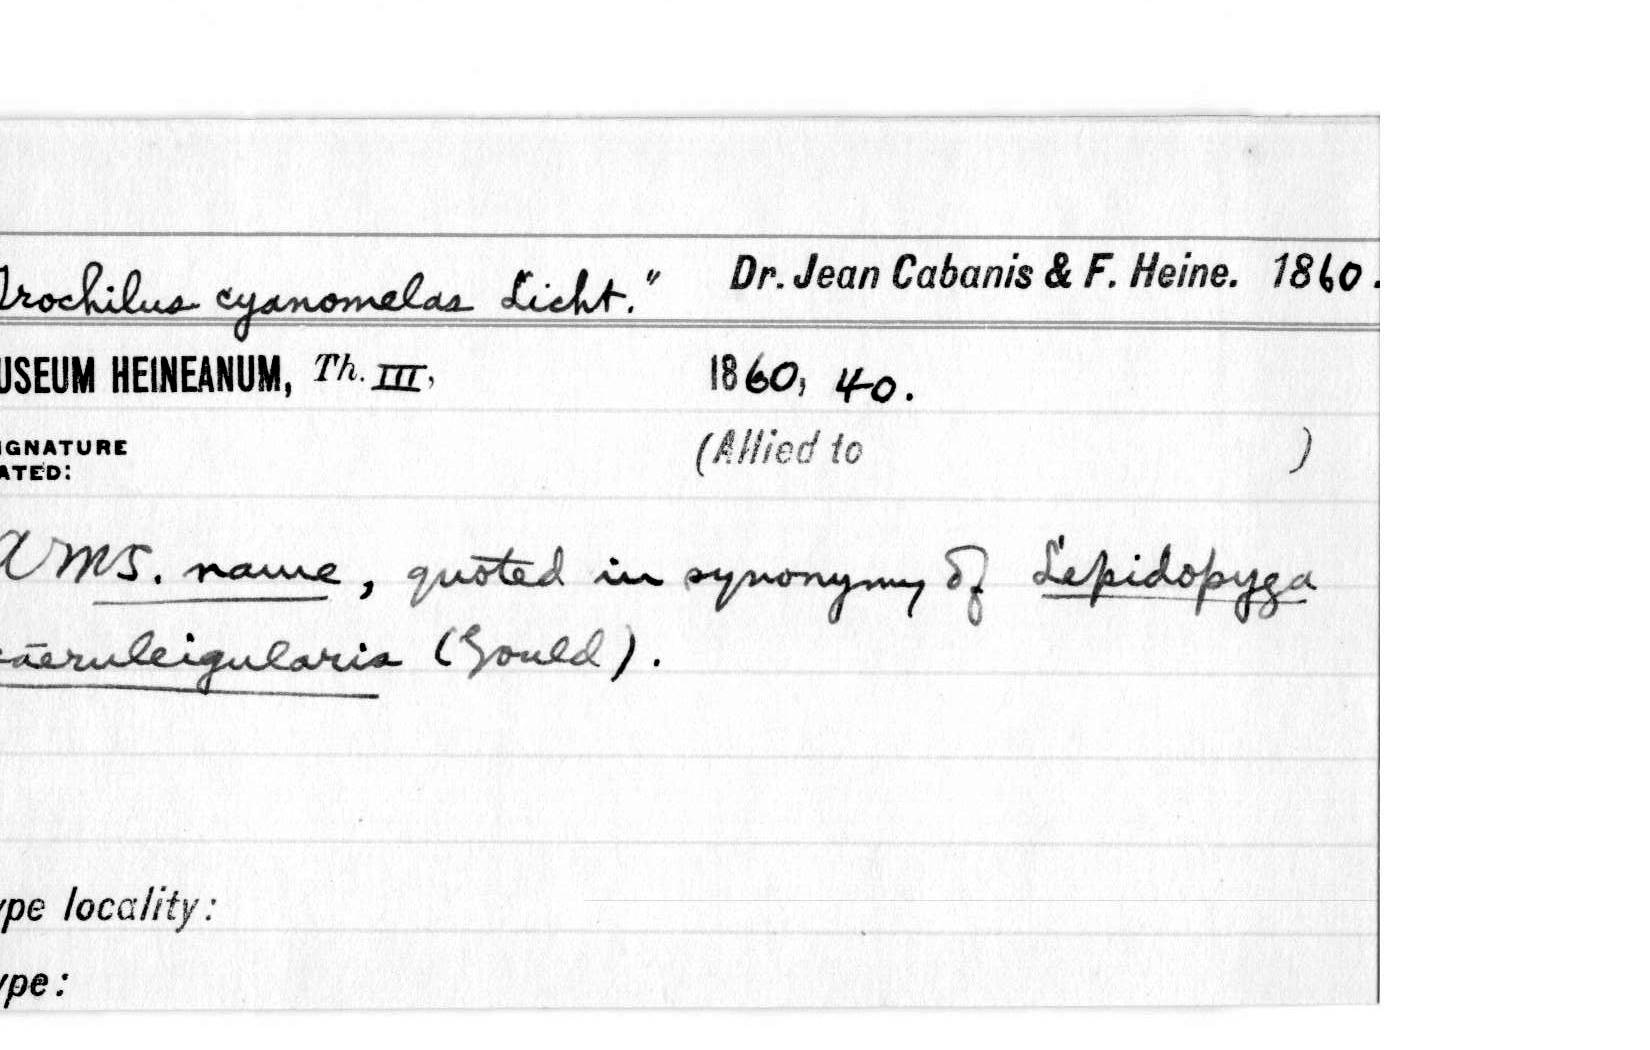 Trochilus cyanomelas Licht." Dr. Jean Cabanis & F. Heine. 1860.
USEUM HEINEANUM, Th. III, 1860, 40.
IGNATURE (Allied to )
ATED:
A MS. name, quoted in synonymy of Lepidopyga
caeruleigularis (Gould).
ype locality:
ype: